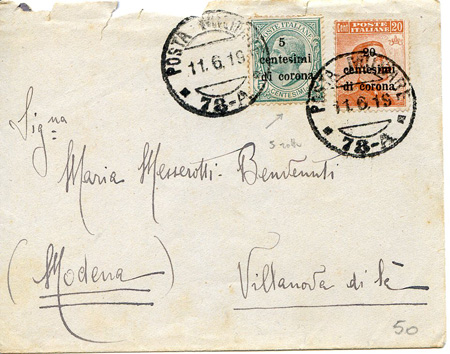 POSTA MILITARE
11.6.19
73-A
POSTE ITALIANE
5
centesimi
di corona
CENTESIMI
Cent POSTE ITALIANE 20
20
centesimi
di corona
POSTA MILITARE
11.6.19
73-A
Signa
Maria Messerotti-Benvenuti
(Modena) Villanova di
50